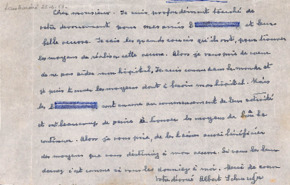 Cher monsieur. Je suis profondément touché de
votre dévouement pour mes amis et leur
belle œuvre. Je sais que grands soucis qu'ils ont, pour trouver
les moyens de réaliser cette œuvre. Alors je vous prie de
ne pas aider mon hôpital. Je suis connu dans le monde et
je puis trouver les moyens dont a besoin mon hôpital. Mais
les ont comme au commencement de leur activité
et ont beaucoup de peine à trouver les moyens de
. Alors je vous prie, de les laisser aussi bénéficier
des moyens que vous destiniez à mon œuvre. Si vous les leur
donnez c'est comme si vous les donniez à moi. de cœur
Albert Schweitzer